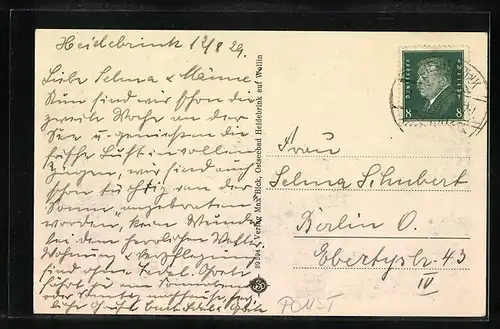 Heidebrink 12/8 29.
Liebe Selma & Männe
Nun sind wir schon die
zweite Woche an der
See u. genießen die
frische Luft in vollen
Zügen, wir sind auch
schon tüchtig von der
Sonne angebraten
worden, kein Wunder
bei dem herrlichen Wetter
Wohnung & Verpflegung
sind ohne Tadel.
39394 Verlag Max Bick, Ostseebad Heidebrink auf Wollin
Deutsches Reich
8 8
Frau
Selma Schubert
Berlin O.
Ebertystr. 43
IV
POM-I